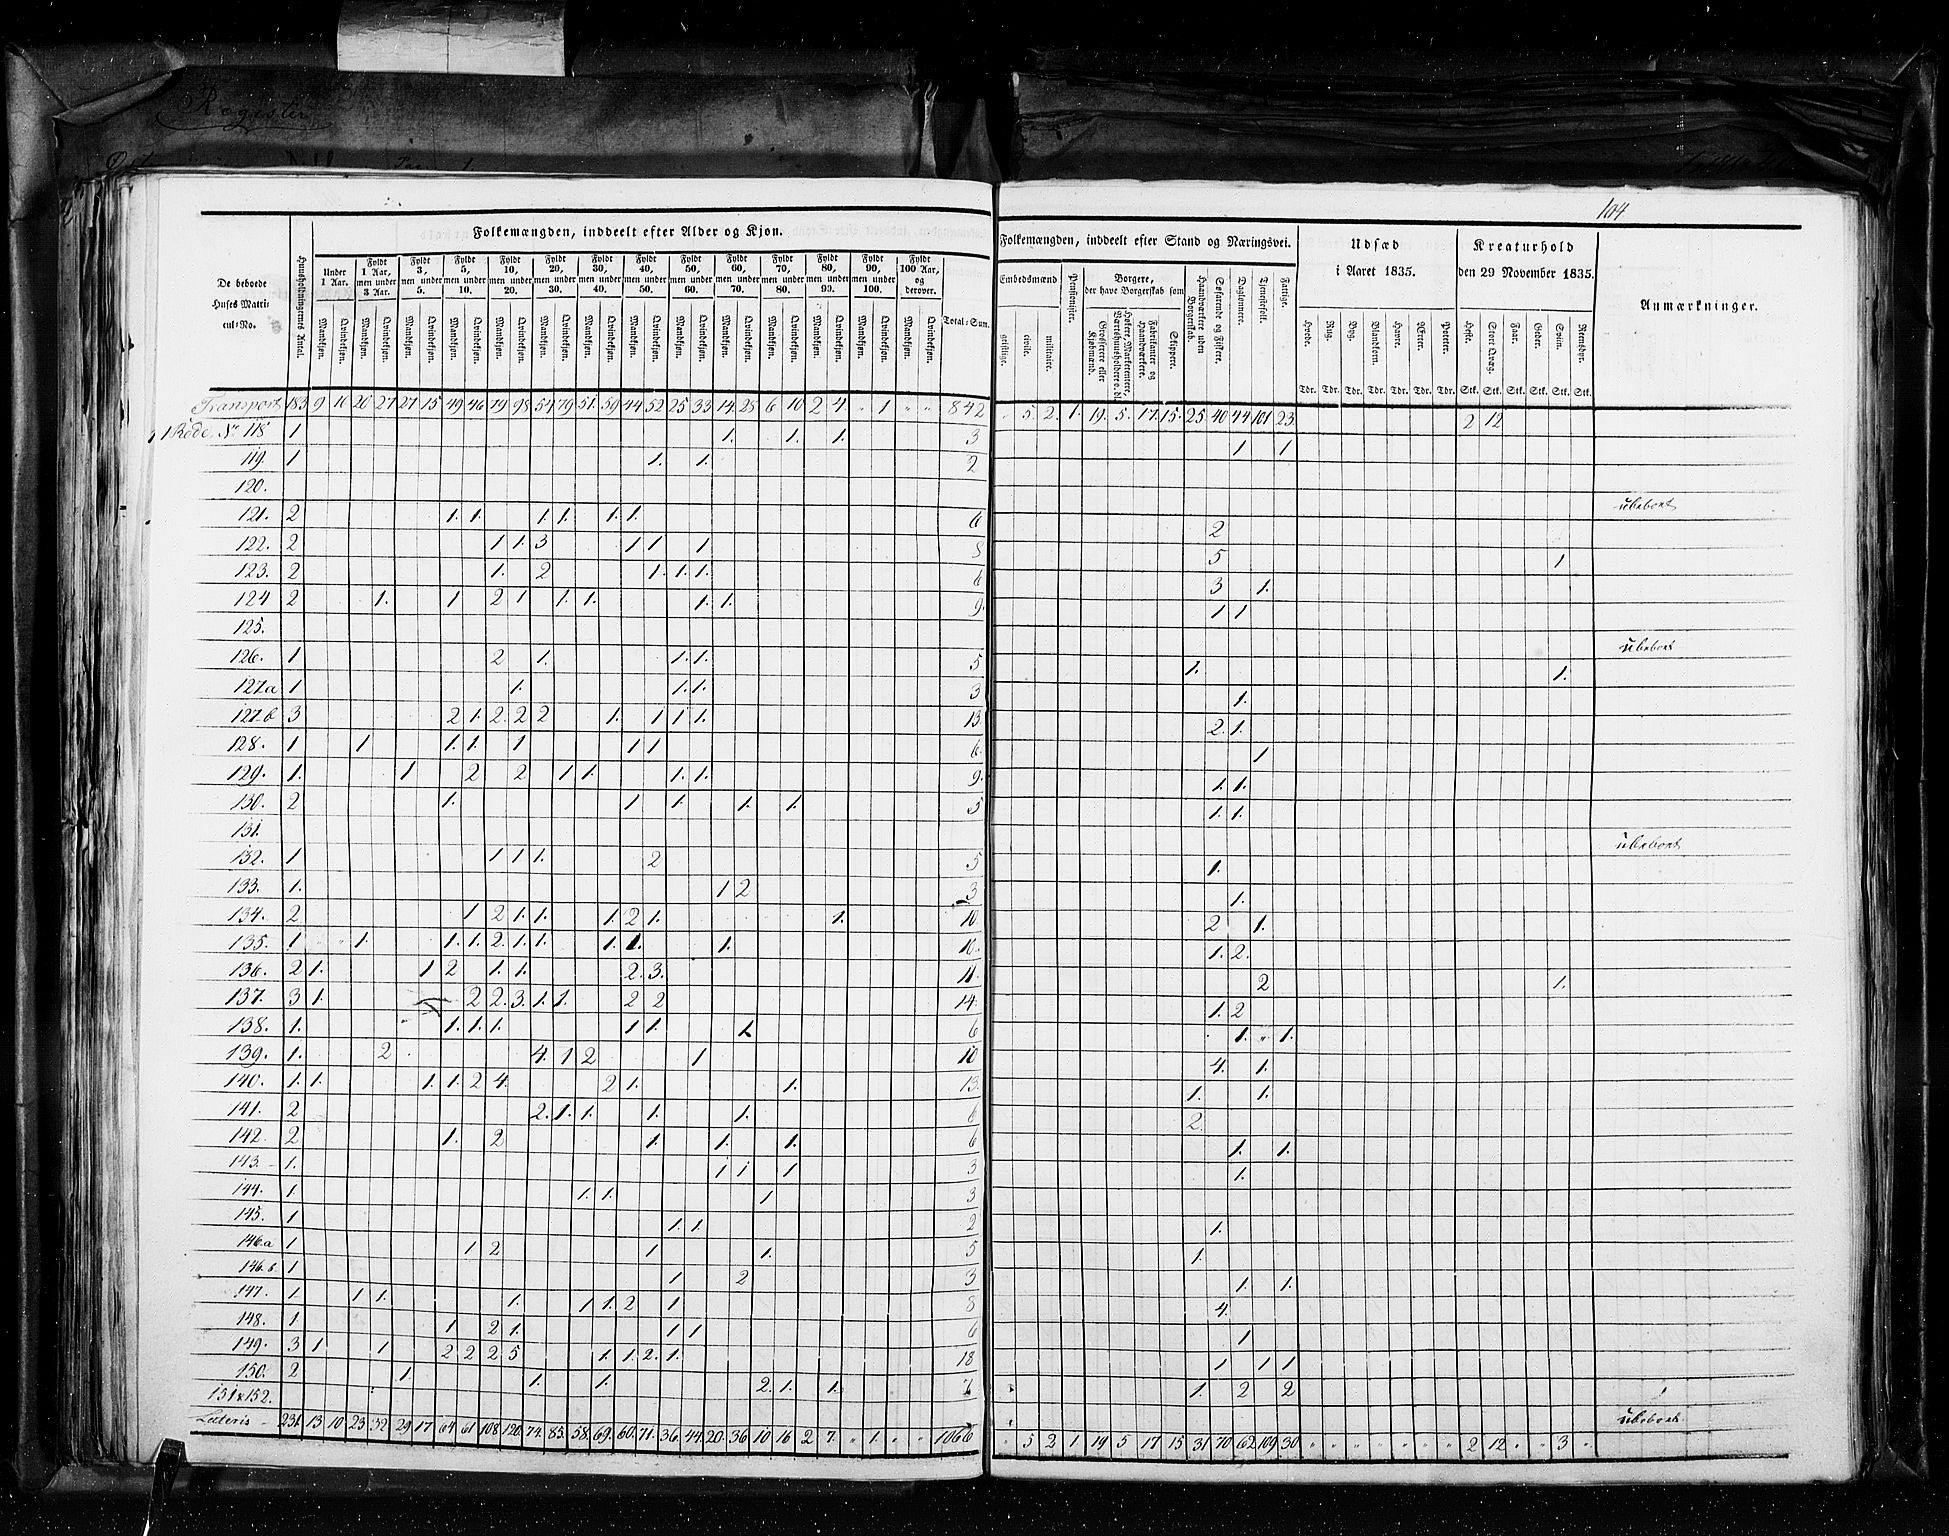 Register
104
Folkemængden, inddeelt efter Alder og Kjøn.
Folkemængden, inddeelt efter Stand og Næringsvei.
Udsæd i Aaret 1835.
Kreaturhold den 29 November 1835.
Anmærkninger.
De beboede Huses Matricul-No.
Huusholdningernes Antal.
Under 1 Aar.
Fyldt 1 Aar, men under 3 Aar.
Fyldt 3, men under 5.
Fyldt 5, men under 10.
Fyldt 10, men under 20.
Fyldt 20, men under 30.
Fyldt 30, men under 40.
Fyldt 40, men under 50.
Fyldt 50, men under 60.
Fyldt 60, men under 70.
Fyldt 70, men under 80.
Fyldt 80, men under 90.
Fyldt 90, men under 100.
Fyldt 100 Aar, og derover.
Mandkjøn. Qvindekjøn.
Total-Sum.
Embedsmænd
geistlige. civile. militaire.
Pensionister.
Borgere, der have Borgerskab som
Grosserer eller Kjøbmænd.
Høkere, Marketentere, Værtshuusholdere o. dl.
Fabrikanter og Haandværkere.
Skippere.
Haandværkere uden Borgerskab.
Søfarende og Fiskere.
Daglønnere.
Tjenestefolk.
Fattige.
Hvede. Rug. Byg. Blandkorn. Havre. Ærter. Poteter.
Tdr. Tdr. Tdr. Tdr. Tdr. Tdr. Tdr.
Heste. Stort Qvæg. Faar. Geder. Sviin. Rensdyr.
Stk. Stk. Stk. Stk. Stk. Stk.
Transport 183 9 10 20 27 27 15 49 46 79 98 54 79 51. 59 44 52 25 33 14. 28 6 10 2 4. " 1 " " 842 " 5. 2. 1. 19. 5. 17. 15. 25 40 44 101 23. 2 12
1 Rode. No 118 1 1. 1. 1. 3 1 1
119. 1 1. 1. 2
120. ubeboet
121. 2 1. 1. 1. 1. 1. 1. 6 2
122. 2 1 1. 3 1 1 1 8 5 1
123. 2 1. 2 1. 1. 1. 6 3 1.
124 2 1. 1 2 1 1. 1. 1. 1. 9. 1 1
125. ubeboet
126. 1 2 1. 1. 1. 5 1. 1.
127.a 1 1. 1. 1. 3 1.
127.b 3 2 1. 2. 2 2 1. 1 1 1. 13 2. 1.
128. 1 1 1. 1. 1 1 1 6. 1
129. 1. 1 2 2 1 1. 1. 1. 9. 1. 1.
130. 2 1. 1 1. 1. 1. 5 1. 1.
131. ubeboet
132. 1 1 1 1. 2 5 1.
133. 1. 1 2 3 1.
134. 2 1 2 1. 1. 1. 2 1. 1. 10 2 1.
135. 1 1. 1. 1. 2. 1. 1. 1. 1. 1. 10. 1. 2.
136. 2 1. 1 2 1. 1. 2. 3. 11. 2 1.
137. 3 1. 2 2. 3. 1. 1. 2 2 14. 1. 2
138. 1. 1. 1. 1. 1 1. 1. 6 1. " 1.
139. 1. 2 4. 1 2 1 10 4. 1.
140. 1. 1. 1. 1. 2 4. 2 1. 1. 13. 1. 1.
141. 2 2. 1. 1. 1. 1. 6 2.
142. 2 1. 2 1. 1. 1. 6 1. 1.
143. 1. 1 1 1 3 1.
144. 1. 1. 1. 1 3
145. 1 1. 1. 2 1.
146.a 1 1 2 1 1. 5 1.
146.b 1 1 2 3 1. 1.
147. 1. 1 1. 1. 1 1. 2 1 8 4.
148. 1 1 2 1. 1 1 6 1
149. 3 1 1 2 2 2 5 1. 1. 2. 1. 18 1 1 1
150. 2 1 1. 1. 2. 1. 1. 7 1. 2 2
151 & 152. ubeboet.
Lateris 231. 13 10 23 32 29 17 64 61 108 120. 74. 85. 58. 69. 60. 71. 36. 44. 20. 36 10 16 2 7. " 1. " " 1066 " 5 2 1. 19 5 17 15 31 70 62 109 30 " " " " " " " 2 12 " " 3 "